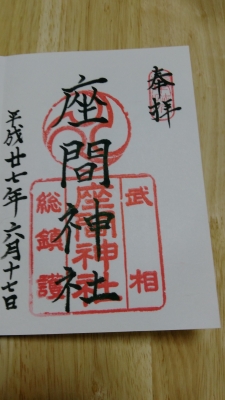 奉拝
座間神社
武相
座間神社
総鎮護
平成廿七年六月十七日